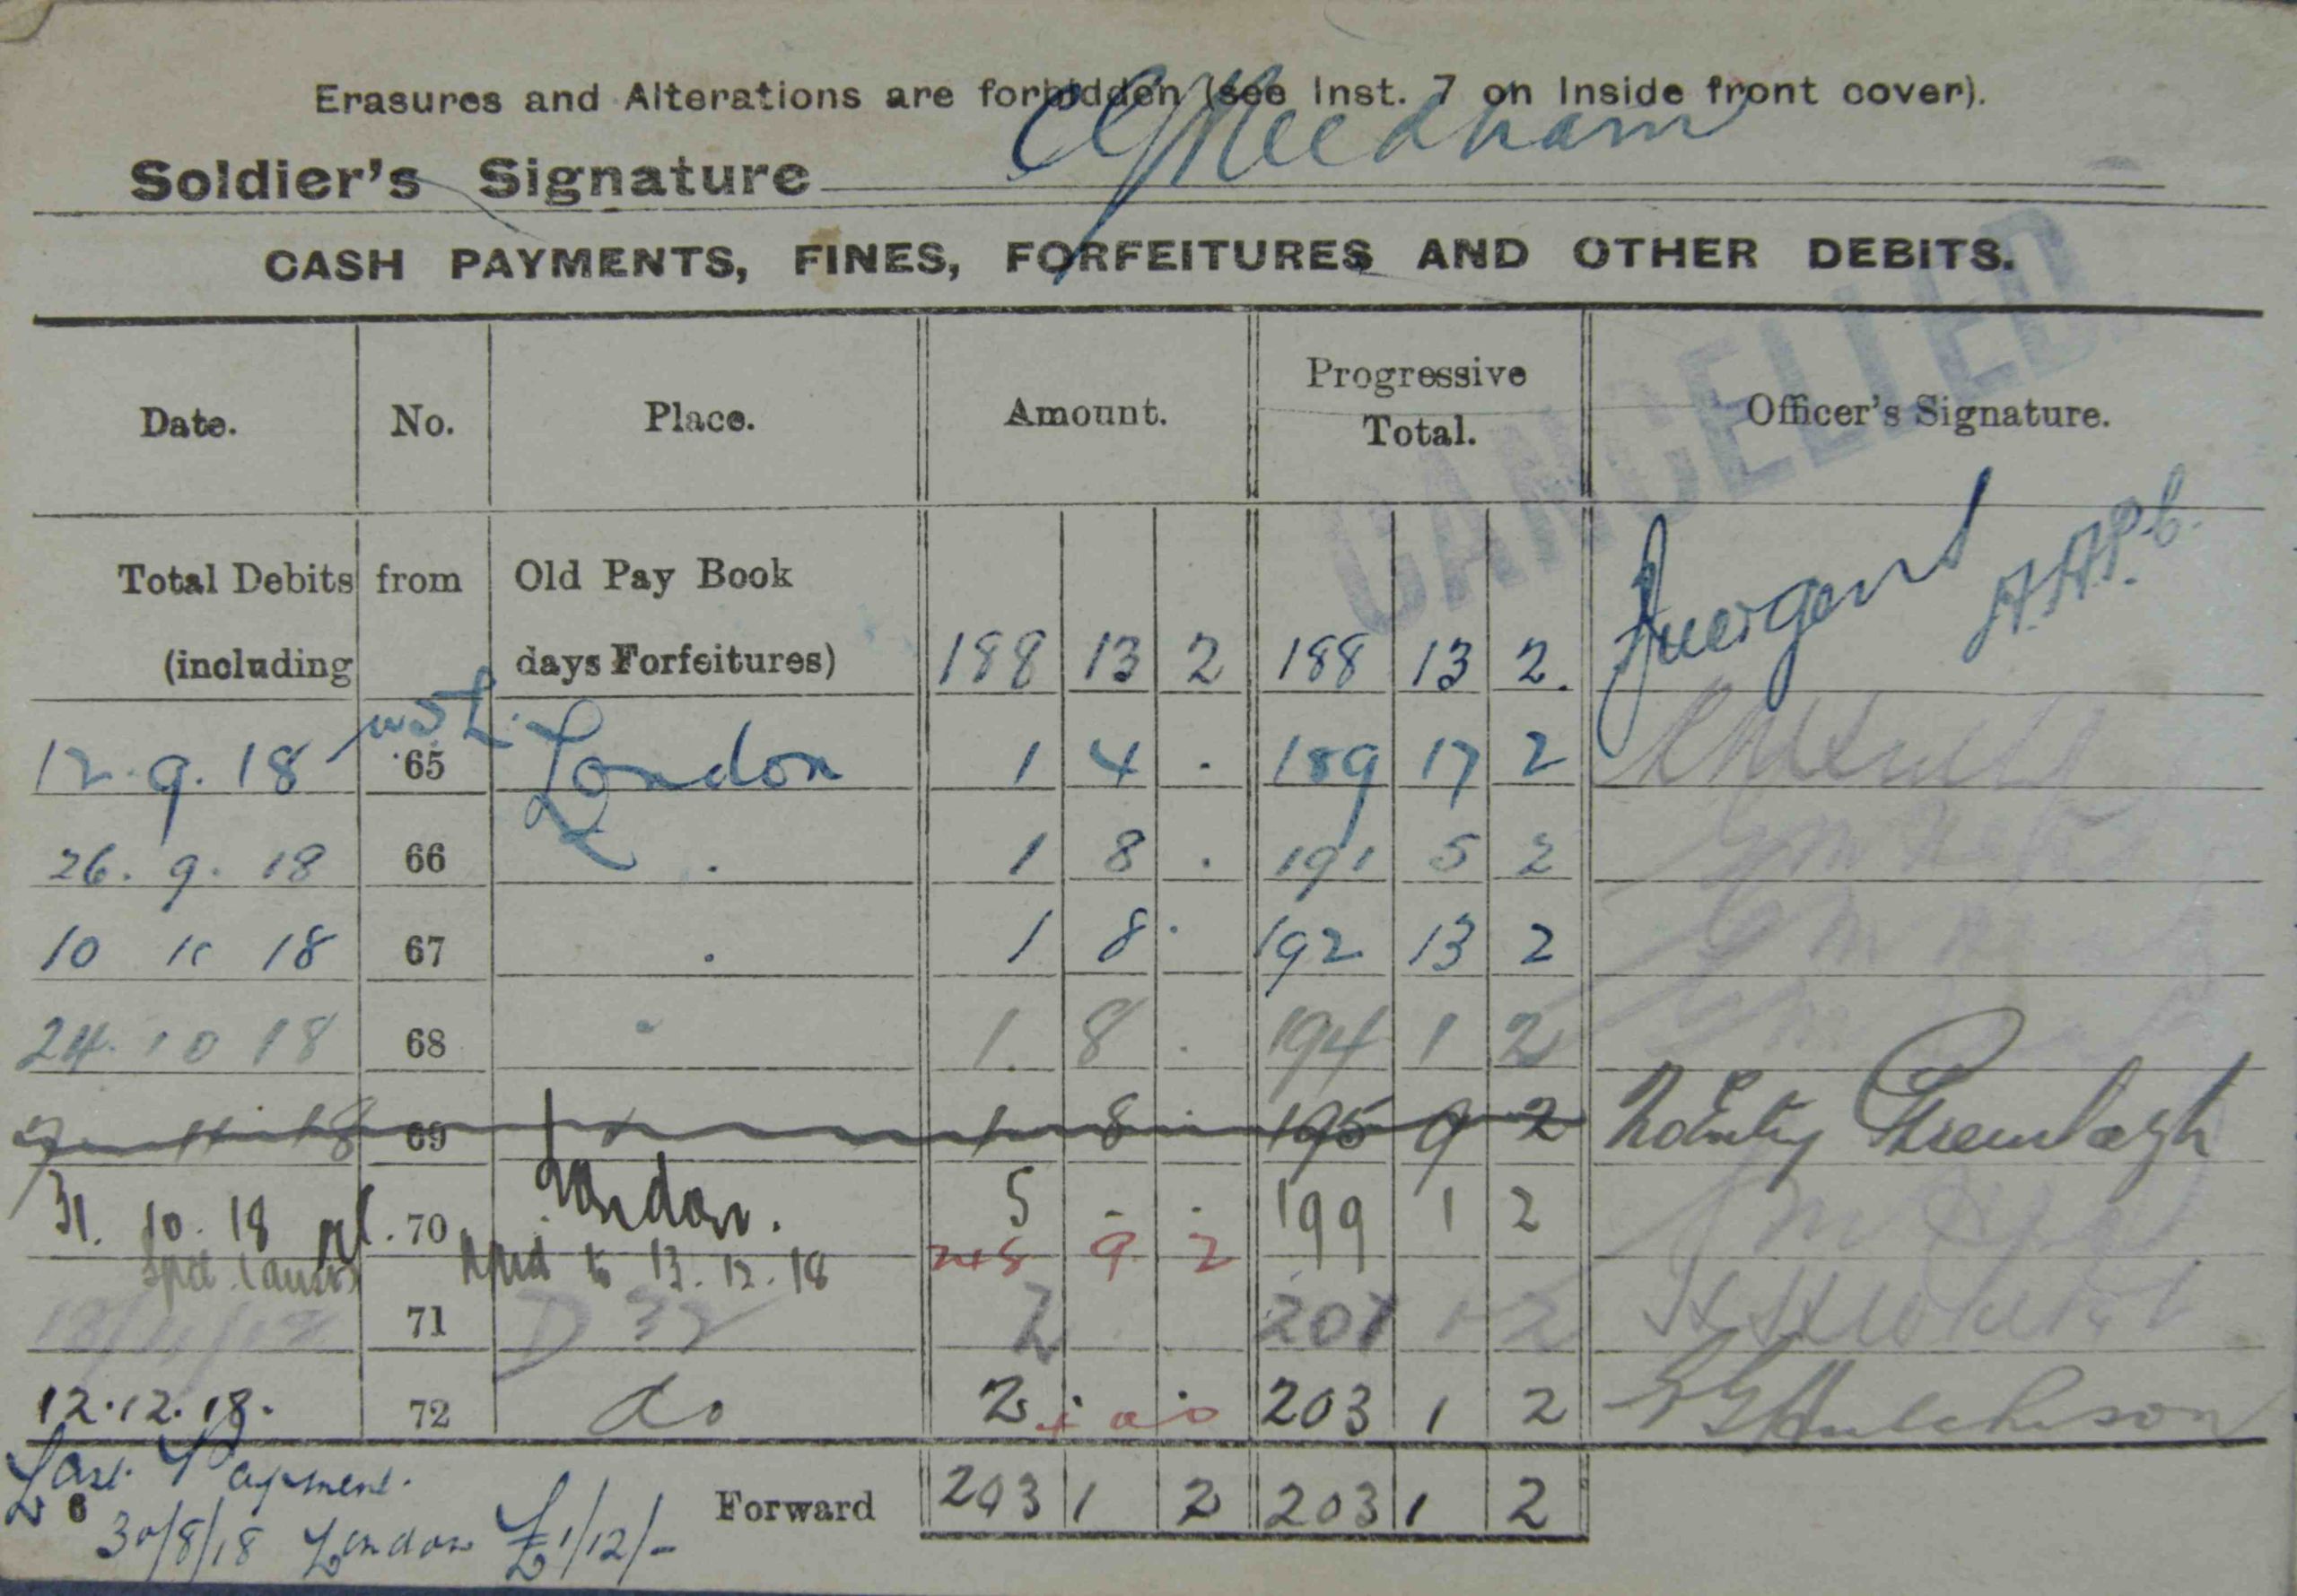 Erasures and Alterations are forbidden (see Inst. 7 on Inside front cover).
Soldier's Signature Needham
CASH PAYMENTS, FINES, FORFEITURES AND OTHER DEBITS.
CANCELLED.
Date. No. Place. Amount. Progressive Total. Officer's Signature.
Total Debits from Old Pay Book
(including days Forfeitures) 188 13 2 188 13 2.
12.9.18 65 London 1 4 . 189 17 2
26.9.18 66 . 1 8 . 191 5 2
10 10 18 67 . 1 8 . 192 13 2
24.10 18 68 " 1. 8 . 194 1 2
7 11 18 69 1 8 . 195 9 2
31.10.18 70 London. 5 - . 199 1 2
to 13.12.18 248 9 2
71 D 32 2 201 1 2
12.12.18. 72 do 2 . . 203 1 2 Hutchison
Last Payment. Forward 203 1 2 203 1 2
6
30/8/18 London £1/12/-